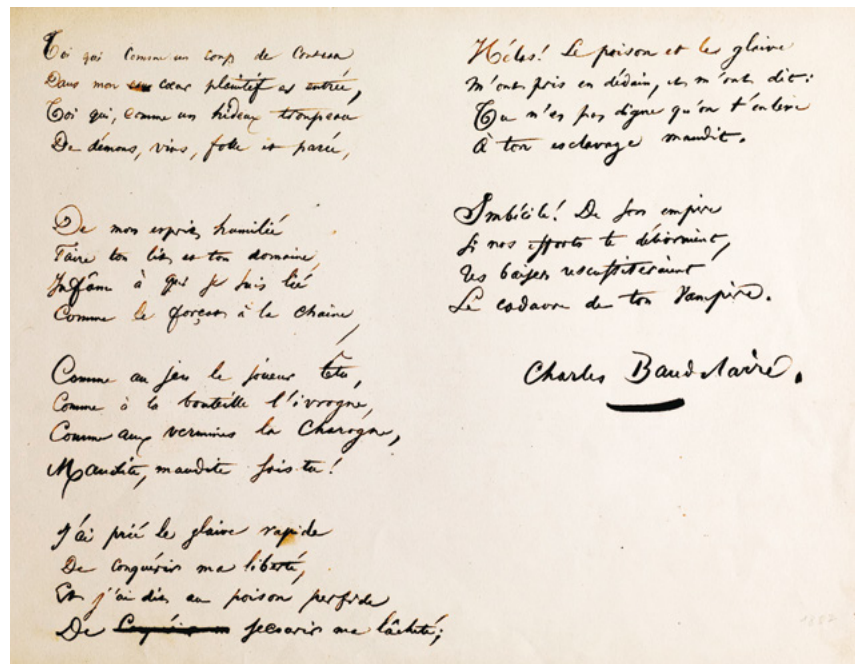 Toi qui comme un coup de Couteau
Dans mon cœur plaintif es entrée,
Toi qui, comme un hideux troupeau
De démons, vins, folle et parée,
De mon esprit humilié
Faire ton lit et ton domaine,
Infâme à qui je suis lié
Comme le forçat à la chaine,
Comme au jeu le joueur têtu,
Comme à la bouteille l'ivrogne,
Comme aux vermines la Charogne,
Maudite, maudite sois-tu!
J'ai prié le glaive rapide
De conquérir ma liberté,
Et j'ai dit au poison perfide
De secourir ma lâcheté;
Hélas! Le poison et le glaive
M'ont pris en dédain, et m'ont dit:
Tu n'es pas digne qu'on t'enlève
À ton esclavage maudit.
Imbécile! De son empire
Si nos efforts te délivraient,
Tes baisers ressusciteraient
Le cadavre de ton Vampire.
Charles Baudelaire.